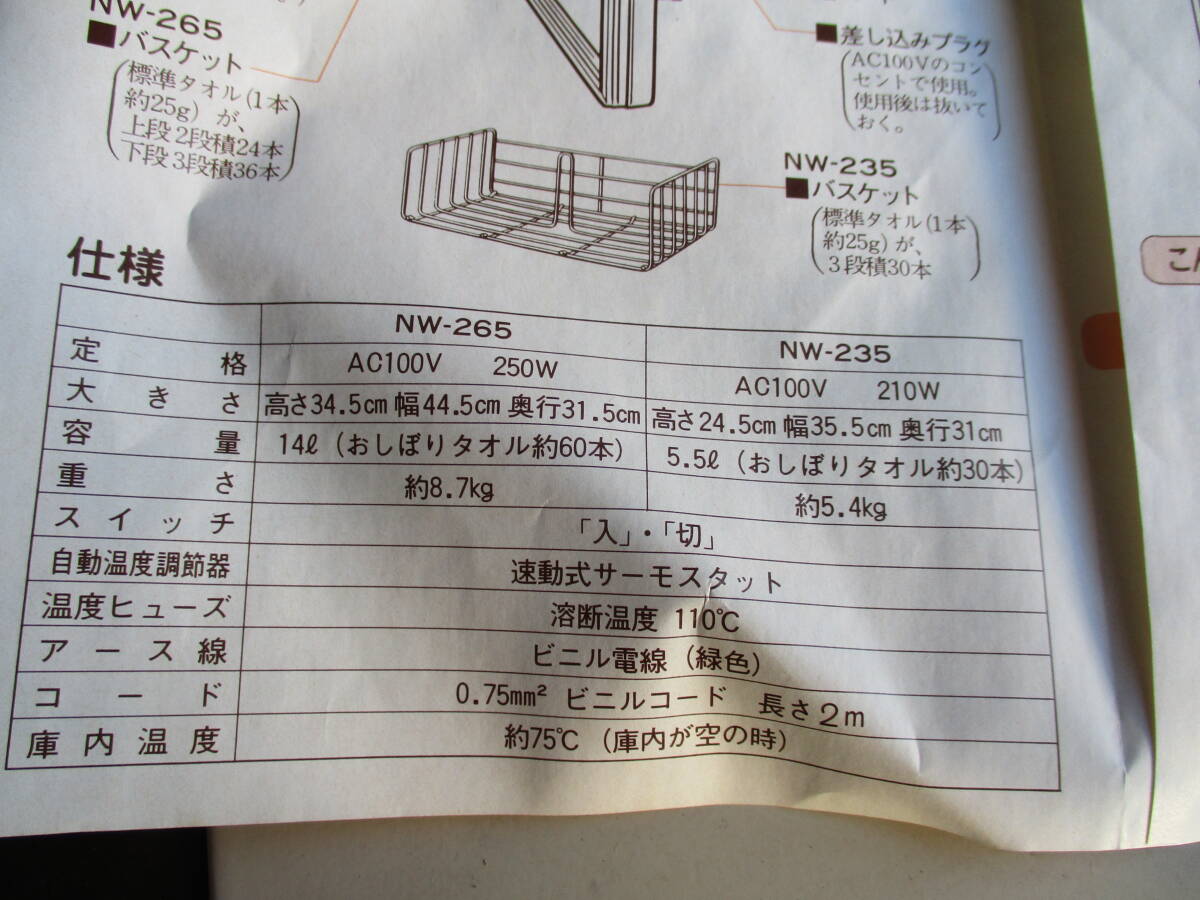 NW-265
■バスケット
(標準タオル(1本
約25g)が、
上段2段積24本
下段3段積36本)
■差し込みプラグ
(AC100Vのコン
セントで使用。
使用後は抜いて
おく。)
NW-235
■バスケット
(標準タオル(1本
約25g)が、
3段積30本)
仕様
NW-265 NW-235
定格 AC100V 250W AC100V 210W
大きさ 高さ34.5cm 幅44.5cm 奥行31.5cm 高さ24.5cm 幅35.5cm 奥行31cm
容量 14ℓ(おしぼりタオル約60本) 5.5ℓ(おしぼりタオル約30本)
重さ 約8.7kg 約5.4kg
スイッチ 「入」・「切」
自動温度調節器 速動式サーモスタット
温度ヒューズ 溶断温度 110℃
アース線 ビニル電線(緑色)
コード 0.75mm² ビニルコード 長さ2m
庫内温度 約75℃(庫内が空の時)